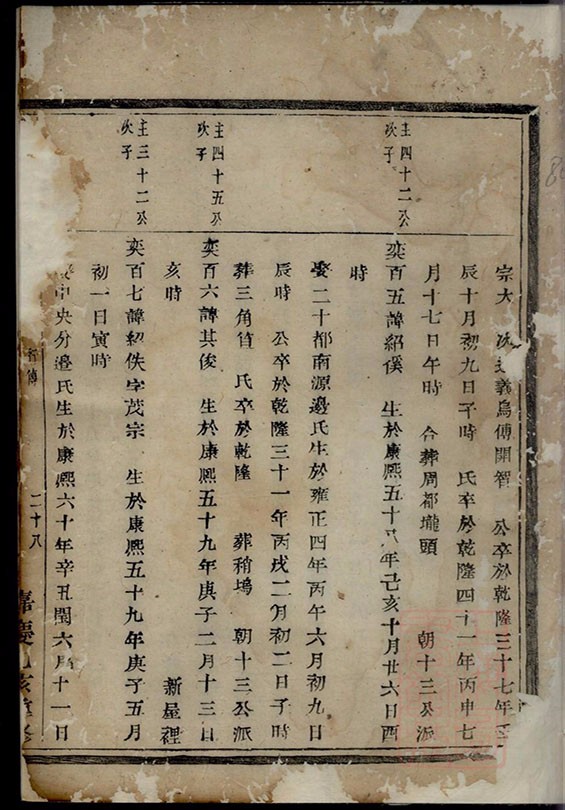 宗大 次適義烏傅開智 公卒於乾隆三十七年壬
辰十月初九日子時 氏卒於乾隆四十一年丙申七
月十七日午時 合葬周都壠頭 朝十三公派
主四十二公
次子
奕百五諱紹僕 生於康熙五十八年己亥十月廿六日酉
時
娶二十都南源邊氏生於雍正四年丙午六月初九日
辰時 公卒於乾隆三十一年丙戌二月初二日子時
葬三角 氏卒於乾隆 葬稍塢 朝十三公派
主四十五公
次子
奕百六諱其俊 生於康熙五十九年庚子二月十三日
亥時 新屋裡
主三十二公
次子
奕百七諱紹佚字茂宗 生於康熙五十九年庚子五月
初一日寅時
中央分邊氏生於康熙六十年辛丑閏六月十一日
傳 二十八 嘉慶